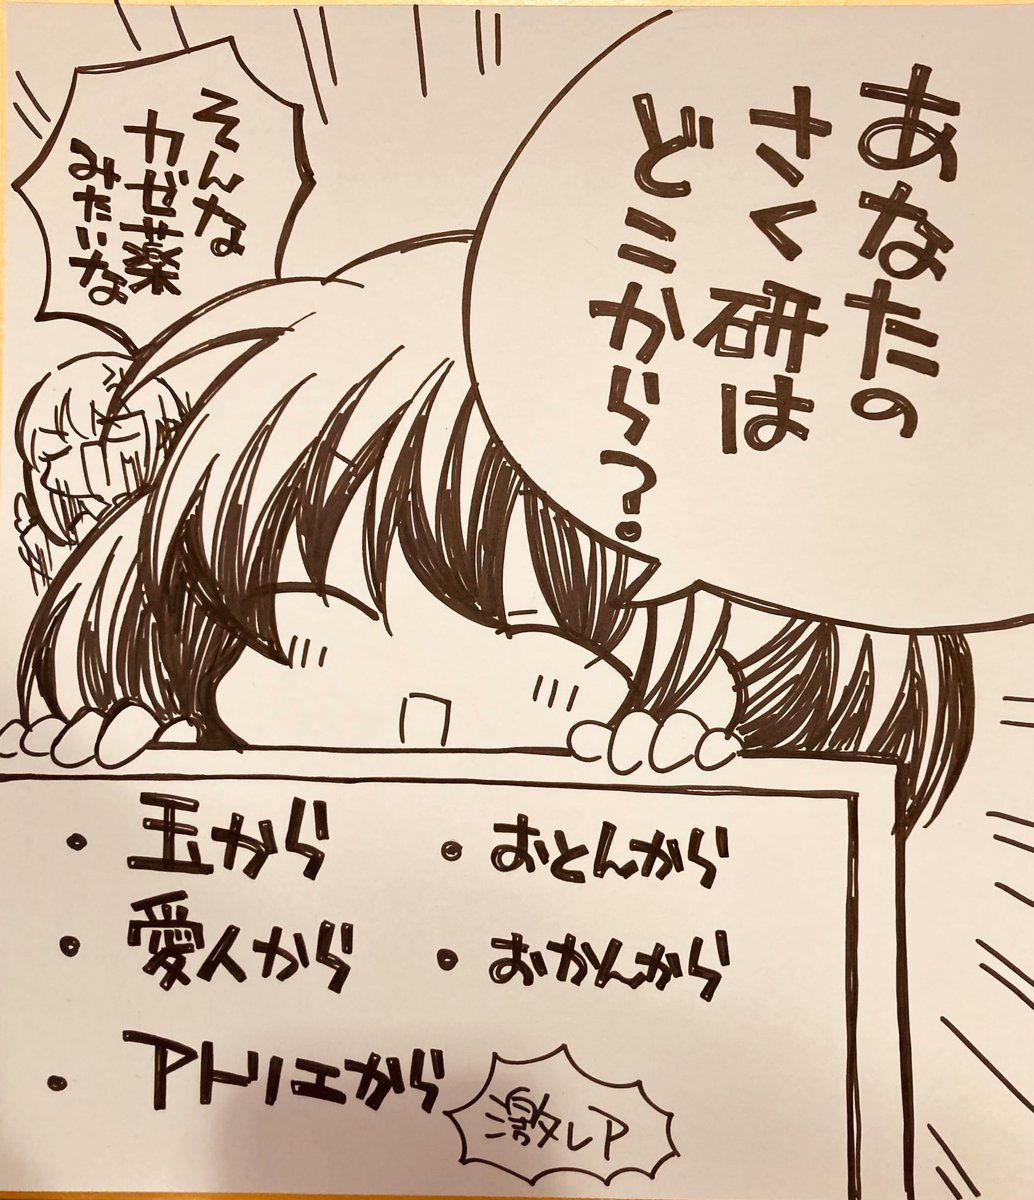 あなたの
さく研は
どこから?
そんな
カゼ薬
みたいな
・玉から
・愛人から
・アトリエから
激レア
・おとんから
・おかんから